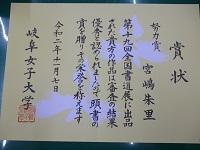 賞状
努力賞
宮嶋朱里
第十九回全国書道展に出品
された貴方の作品は審査の結果
優秀と認められましたので頭書の
賞を贈りその栄誉を称えます
令和二年十一月七日
岐阜女子大学